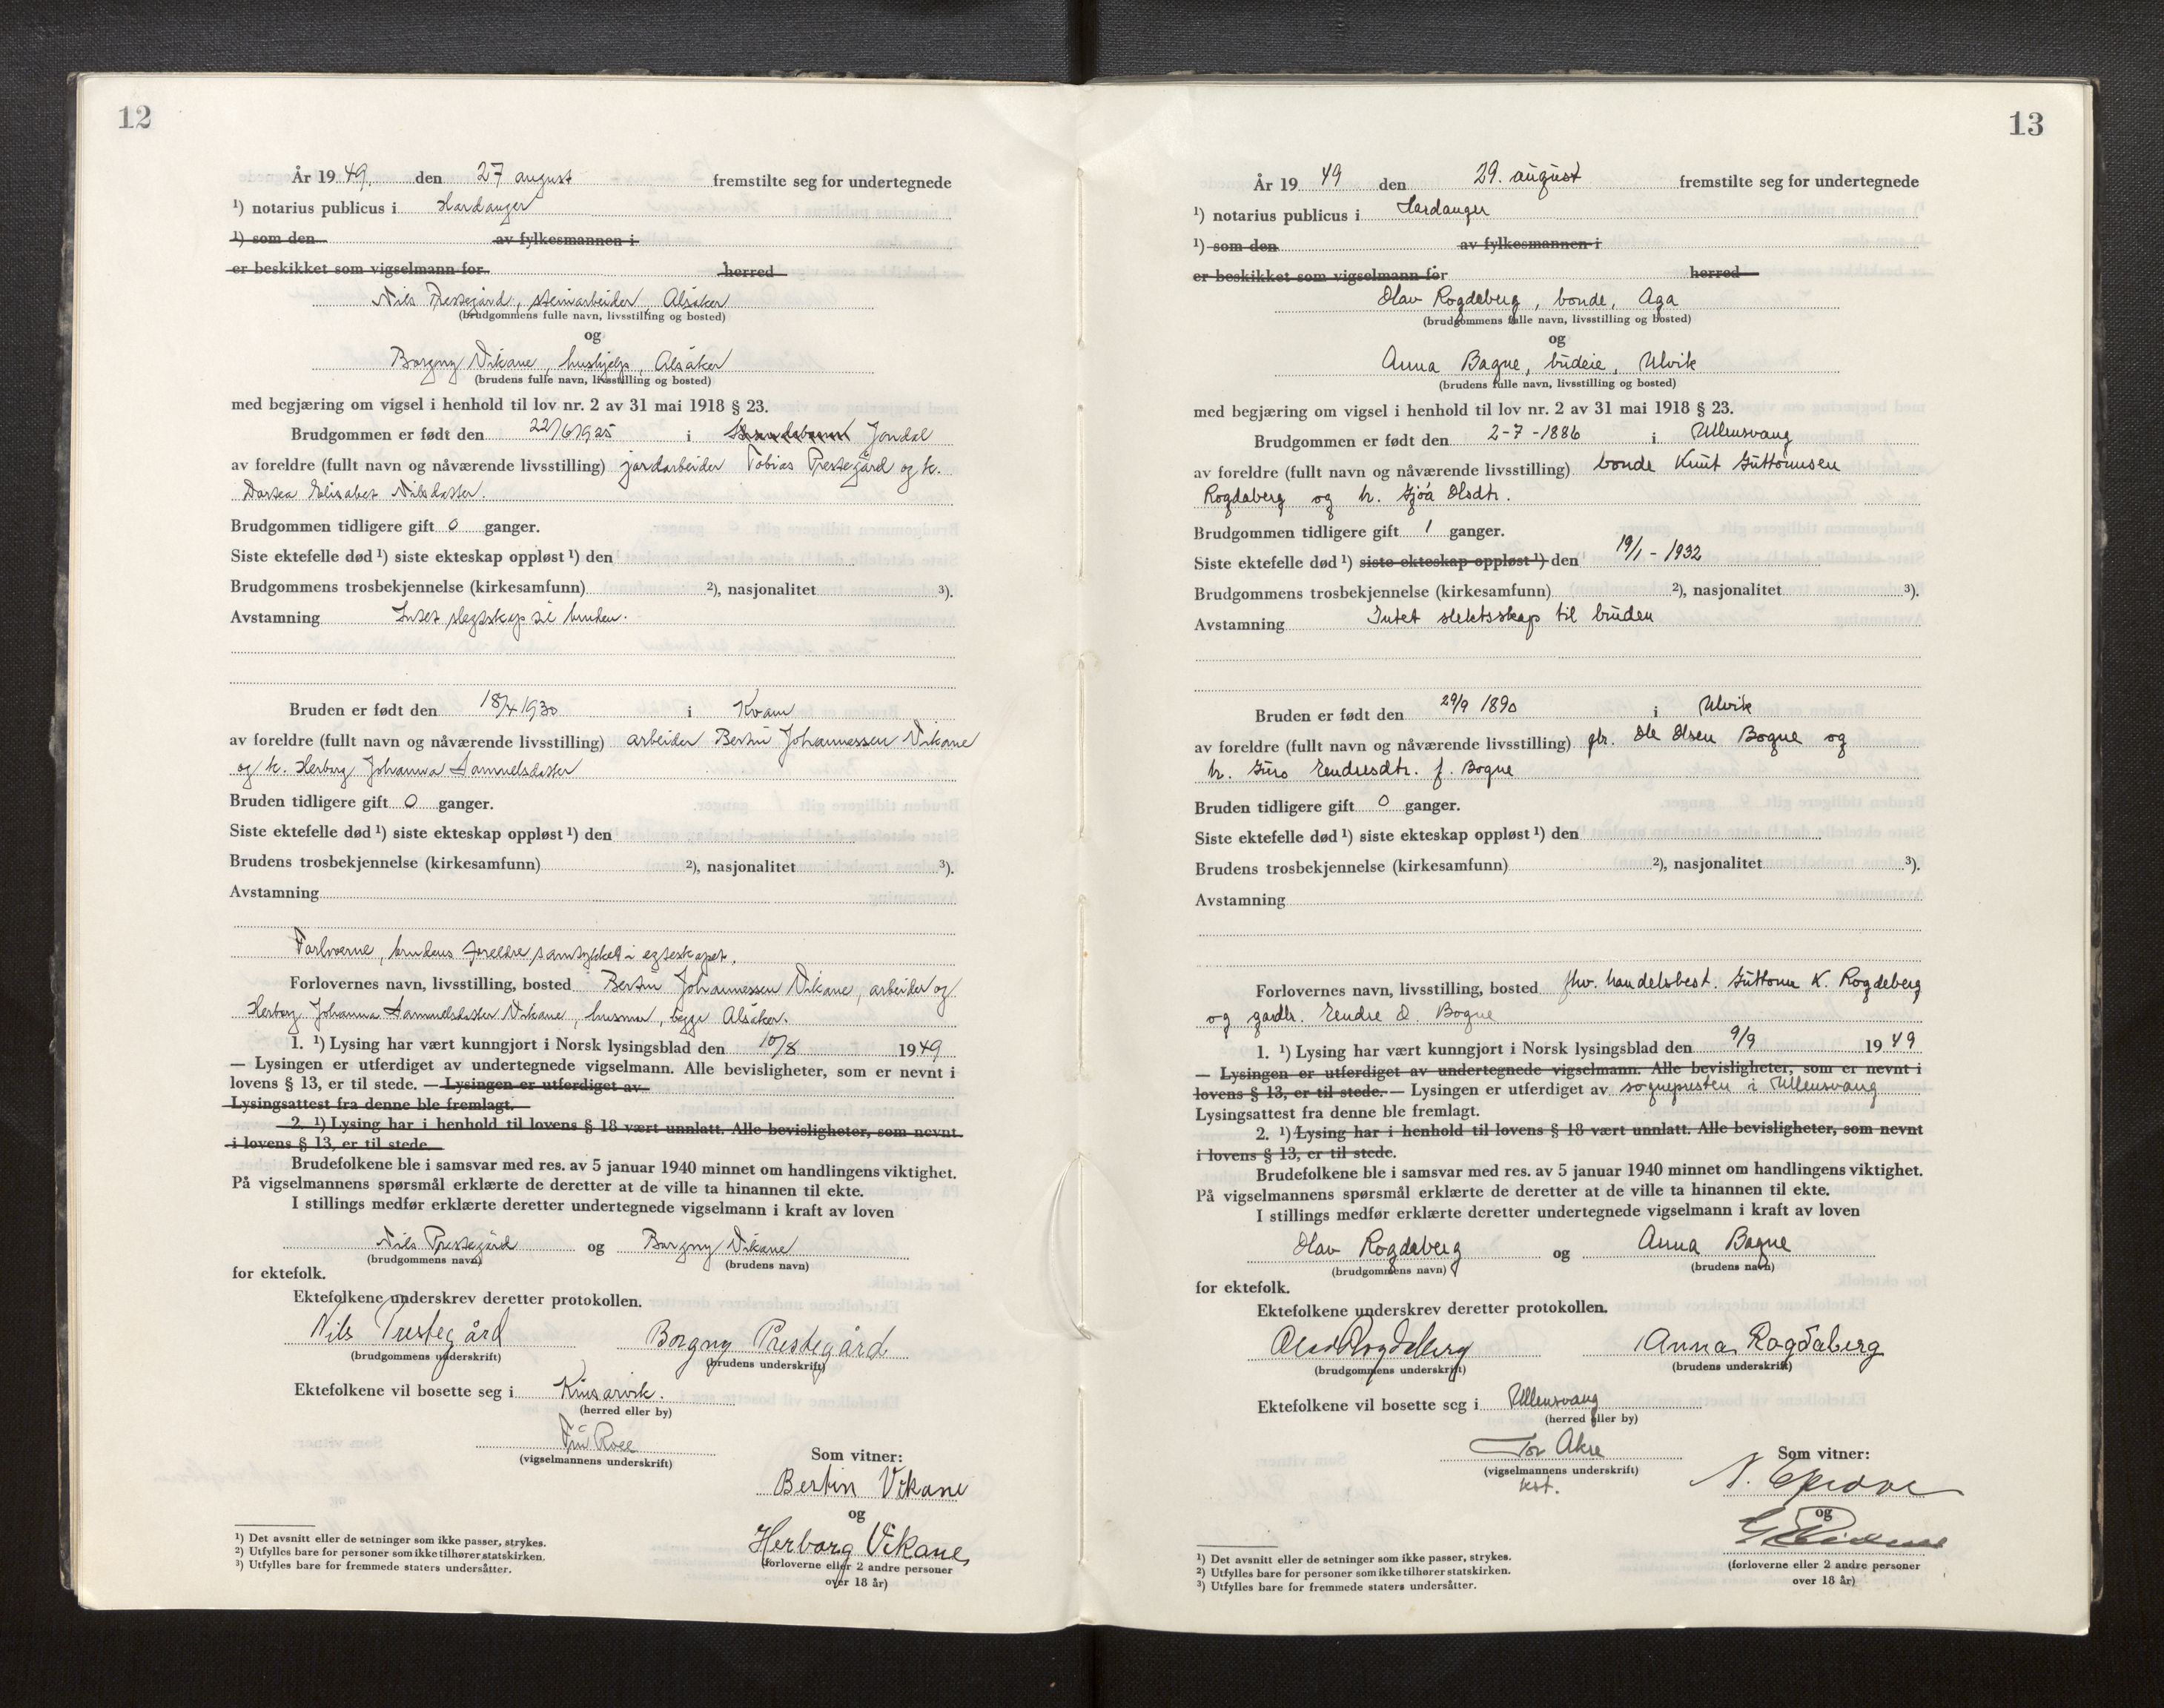 12
År 1949, den 27 august fremstilte seg for undertegnede
¹) notarius publicus i Hardanger
¹) som den av fylkesmannen i
er beskikket som vigselmann for herred
Nils Prestegård, steinarbeider Alsåker
(brudgommens fulle navn, livsstilling og bosted)
og
Borgny Vikane, hushjelp, Alsåker
(brudens fulle navn, livsstilling og bosted)
med begjæring om vigsel i henhold til lov nr. 2 av 31 mai 1918 § 23.
Brudgommen er født den 22/6 1925 i Jondal
av foreldre (fullt navn og nåværende livsstilling) jordarbeider Tobias Prestegård og h.
Dortea Elisabet Nilsdatter.
Brudgommen tidligere gift 0 ganger.
Siste ektefelle død ¹) siste ekteskap oppløst ¹) den
Brudgommens trosbekjennelse (kirkesamfunn) ²), nasjonalitet ³).
Avstamning Intet slegtskap til bruden.
Bruden er født den 18/4 1930 i Kvam
av foreldre (fullt navn og nåværende livsstilling) arbeider Bertin Johannessen Vikane
og h. Herborg Johanna Samuelsdatter
Bruden tidligere gift 0 ganger.
Siste ektefelle død ¹) siste ekteskap oppløst ¹) den
Brudens trosbekjennelse (kirkesamfunn) ²), nasjonalitet ³).
Avstamning
Forloverne, brudens foreldre, samtykket i egteskapet.
Forlovernes navn, livsstilling, bosted Bertin Johannessen Vikane, arbeider og
Herborg Johanna Samuelsdatter Vikane, husmor, begge Alsåker.
1. ¹) Lysing har vært kunngjort i Norsk lysingsblad den 10/8 1949
— Lysingen er utferdiget av undertegnede vigselmann. Alle bevisligheter, som er nevnt i
lovens § 13, er til stede. — Lysingen er utferdiget av
Lysingsattest fra denne ble fremlagt.
2. ¹) Lysing har i henhold til lovens § 18 vært unnlatt. Alle bevisligheter, som nevnt
i lovens § 13, er til stede
Brudefolkene ble i samsvar med res. av 5 januar 1940 minnet om handlingens viktighet.
På vigselmannens spørsmål erklærte de deretter at de ville ta hinannen til ekte.
I stillings medfør erklærte deretter undertegnede vigselmann i kraft av loven
Nils Prestegård og Borgny Vikane
(brudgommens navn) (brudens navn)
for ektefolk.
Ektefolkene underskrev deretter protokollen.
Nils Prestegård Borgny Prestegård
(brudgommens underskrift) (brudens underskrift)
Ektefolkene vil bosette seg i Kinsarvik.
(herred eller by)
(vigselmannens underskrift)
Som vitner:
Bertin Vikane
og
Herborg Vikane
(forloverne eller 2 andre personer
over 18 år)
¹) Det avsnitt eller de setninger som ikke passer, strykes.
²) Utfylles bare for personer som ikke tilhører statskirken.
³) Utfylles bare for fremmede staters undersåtter.
13
År 1949 den 29. august fremstilte seg for undertegnede
¹) notarius publicus i Hardanger
¹) som den av fylkesmannen i
er beskikket som vigselmann for herred
Olav Rogdeberg, bonde, Aga
(brudgommens fulle navn, livsstilling og bosted)
og
Anna Bagne, budeie, Ulvik
(brudens fulle navn, livsstilling og bosted)
med begjæring om vigsel i henhold til lov nr. 2 av 31 mai 1918 § 23.
Brudgommen er født den 2-7-1886 i Ullensvang
av foreldre (fullt navn og nåværende livsstilling) bonde Knut Guttormsen
Rogdaberg og h. Gjøa Olsdtr.
Brudgommen tidligere gift 1 ganger.
Siste ektefelle død ¹) siste ekteskap oppløst ¹) den 19/1 - 1932
Brudgommens trosbekjennelse (kirkesamfunn) ²), nasjonalitet ³).
Avstamning Intet slektsskap til bruden
Bruden er født den 29/9 1890 i Ulvik
av foreldre (fullt navn og nåværende livsstilling) gbr. Ole Olsen Bogne og
h. Guro Endresdtr. f. Bogne
Bruden tidligere gift 0 ganger.
Siste ektefelle død ¹) siste ekteskap oppløst ¹) den
Brudens trosbekjennelse (kirkesamfunn) ²), nasjonalitet ³).
Avstamning
Forlovernes navn, livsstilling, bosted fhv. handelsbest. Guttorm K. Rogdeberg
og gardbr. Endre O. Bogne
1. ¹) Lysing har vært kunngjort i Norsk lysingsblad den 9/9 1949
— Lysingen er utferdiget av undertegnede vigselmann. Alle bevisligheter, som er nevnt i
lovens § 13, er til stede. — Lysingen er utferdiget av sognepresten i Ullensvang
Lysingsattest fra denne ble fremlagt.
2. ¹) Lysing har i henhold til lovens § 18 vært unnlatt. Alle bevisligheter, som nevnt
i lovens § 13, er til stede.
Brudefolkene ble i samsvar med res. av 5 januar 1940 minnet om handlingens viktighet.
På vigselmannens spørsmål erklærte de deretter at de ville ta hinannen til ekte.
I stillings medfør erklærte deretter undertegnede vigselmann i kraft av loven
Olav Rogdaberg og Anna Bagne
(brudgommens navn) (brudens navn)
for ektefolk.
Ektefolkene underskrev deretter protokollen.
Olav Rogdeberg Anna Rogdaberg
(brudgommens underskrift) (brudens underskrift)
Ektefolkene vil bosette seg i Ullensvang
(herred eller by)
Tor Akre
(vigselmannens underskrift)
kst.
Som vitner:
og
(forloverne eller 2 andre personer
over 18 år)
¹) Det avsnitt eller de setninger som ikke passer, strykes.
²) Utfylles bare for personer som ikke tilhører statskirken.
³) Utfylles bare for fremmede staters undersåtter.